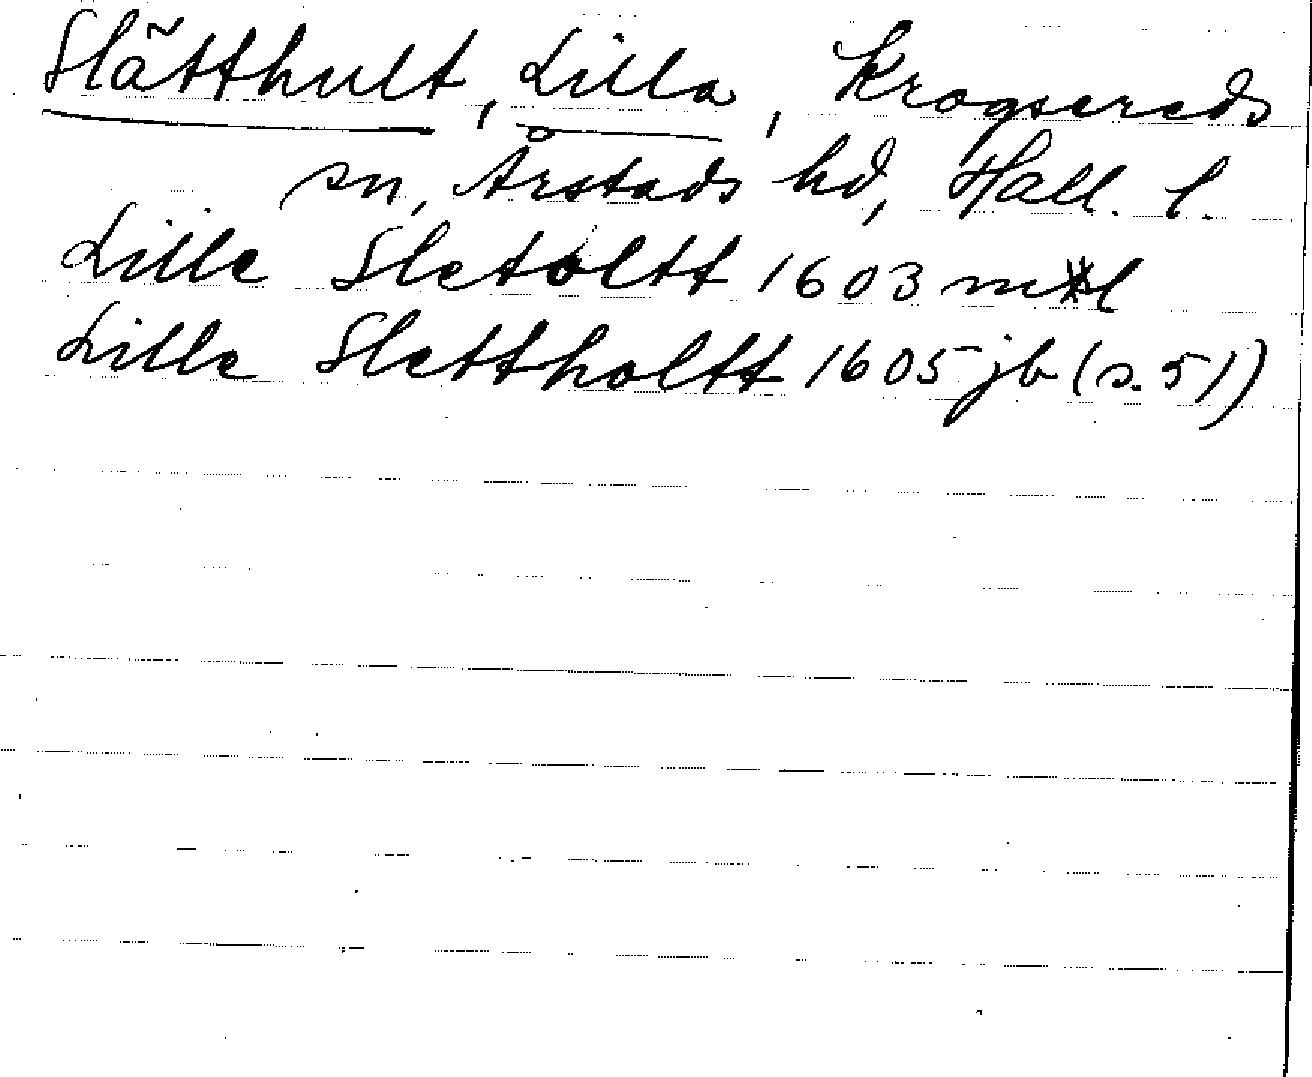 Slätthult, Lilla, Krogsereds
sn, Årstads hd, Hall. l.
Lille Sletoltt 1603 ml
Lille Slettholtt 1605 jb (s. 51)